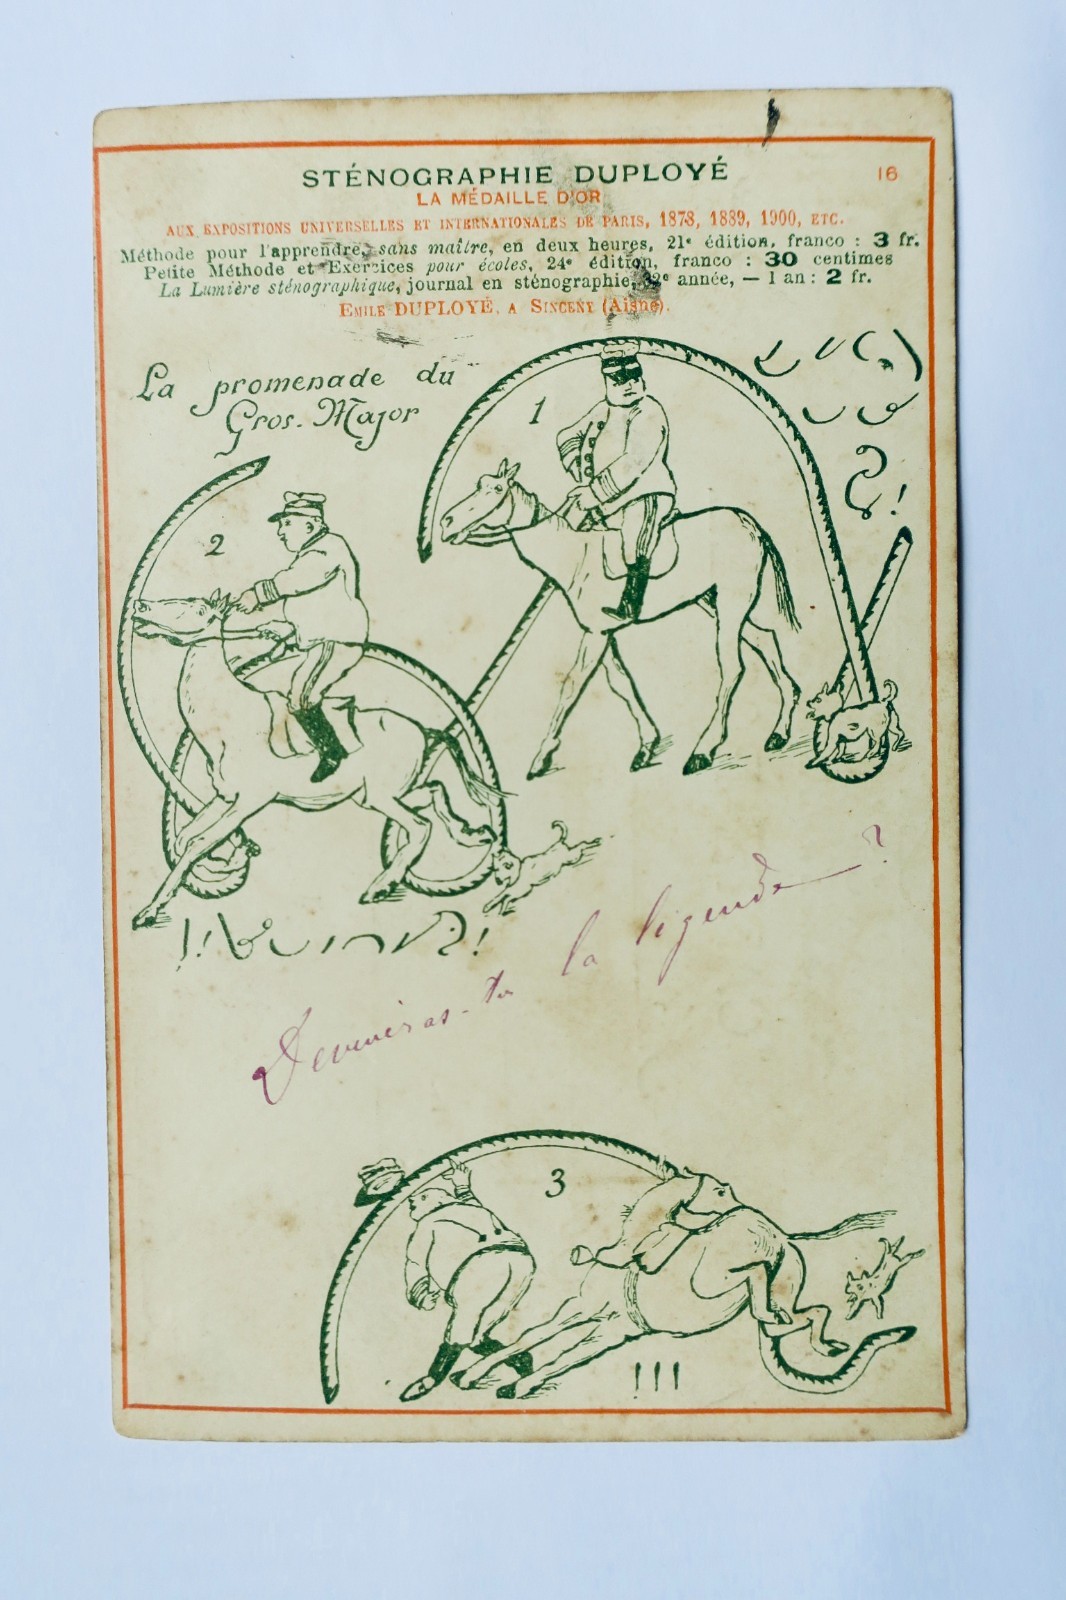 STÉNOGRAPHIE DUPLOYÉ
16
LA MÉDAILLE D'OR
AUX EXPOSITIONS UNIVERSELLES ET INTERNATIONALES DE PARIS, 1878, 1889, 1900, ETC.
Méthode pour l'apprendre, sans maître, en deux heures, 21e édition, franco : 3 fr.
Petite Méthode et Exercices pour écoles, 24e édition, franco : 30 centimes
La Lumière sténographique, journal en sténographie, 32e année, — 1 an : 2 fr.
EMILE DUPLOYÉ, A SINCENY (Aisne).
La promenade du
Gros-Major
1
!
2
!! !!
Devineras-tu la légende ?
3
!!!